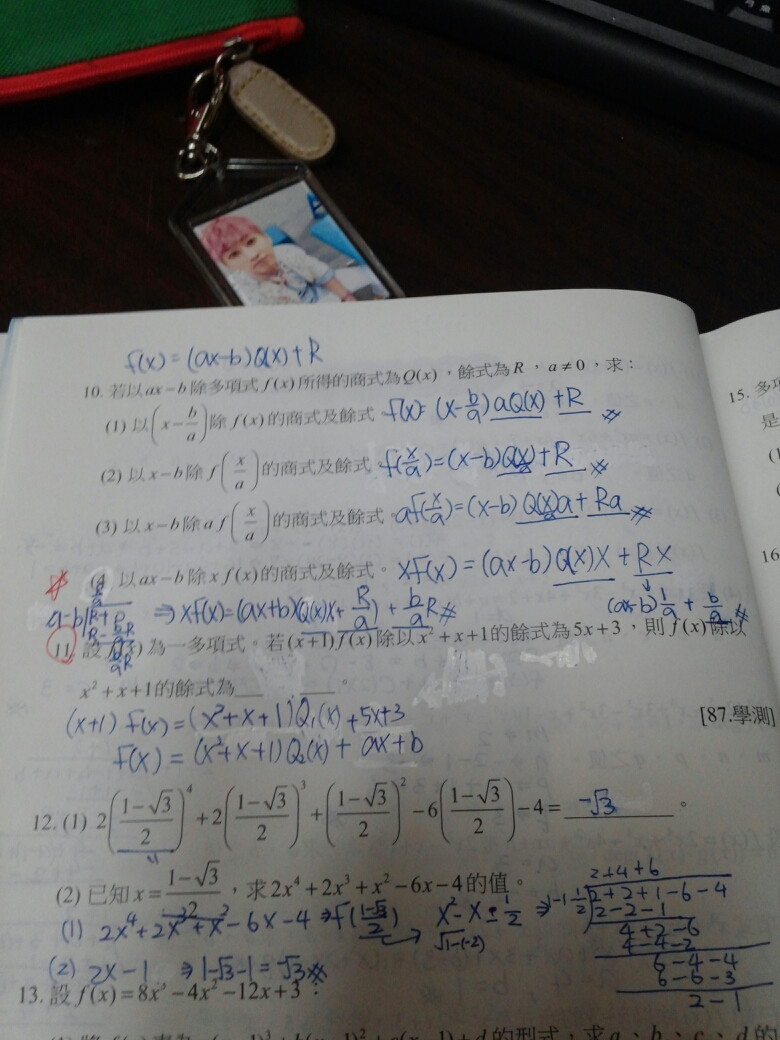 f(x) = (ax-b)Q(x)+R
10. 若以ax−b除多項式f(x)所得的商式為Q(x)，餘式為R，a≠0，求：
(1) 以(x−b/a)除f(x)的商式及餘式 f(x)= (x-b/a)aQ(x)+R
(2) 以x−b除f(x/a)的商式及餘式。f(x/a)=(x-b)Q(x)+R
(3) 以x−b除a f(x/a)的商式及餘式。af(x/a)=(x-b)Q(x)a+Ra
(4 以ax−b除x f(x)的商式及餘式。xf(x)=(ax-b)Q(x)x+Rx
⇒xf(x)=(ax+b)(Q(x)x+R/a)+b/aR
(ax-b)1/a+b/a
11. 設 為一多項式。若(x+1)f(x)除以x²+x+1的餘式為5x+3，則f(x)除以
x²+x+1的餘式為____。
[87.學測]
(x+1)f(x)=(x²+x+1)Q₁(x)+5x+3
f(x)=(x²+x+1)Q₂(x)+ax+b
12. (1) 2((1−√3)/2)⁴+2((1−√3)/2)³+((1−√3)/2)²−6((1−√3)/2)−4= -√3 。
(2) 已知x=(1−√3)/2，求2x⁴+2x³+x²−6x−4的值。
2+4+6
(1) 2x⁴+2x³+x²-6x-4⇒f((1-√3)/2)
-1-1/2
2+2+1-6-4
2-2-1
4+2-6
4-4-2
(2) 2x-1 ⇒1-√3-1=√3
6-4-4
6-6-3
2-1
13. 設f(x)=8x³−4x²−12x+3：
的型式，求a、b、c、d的
15. 多項
是
16